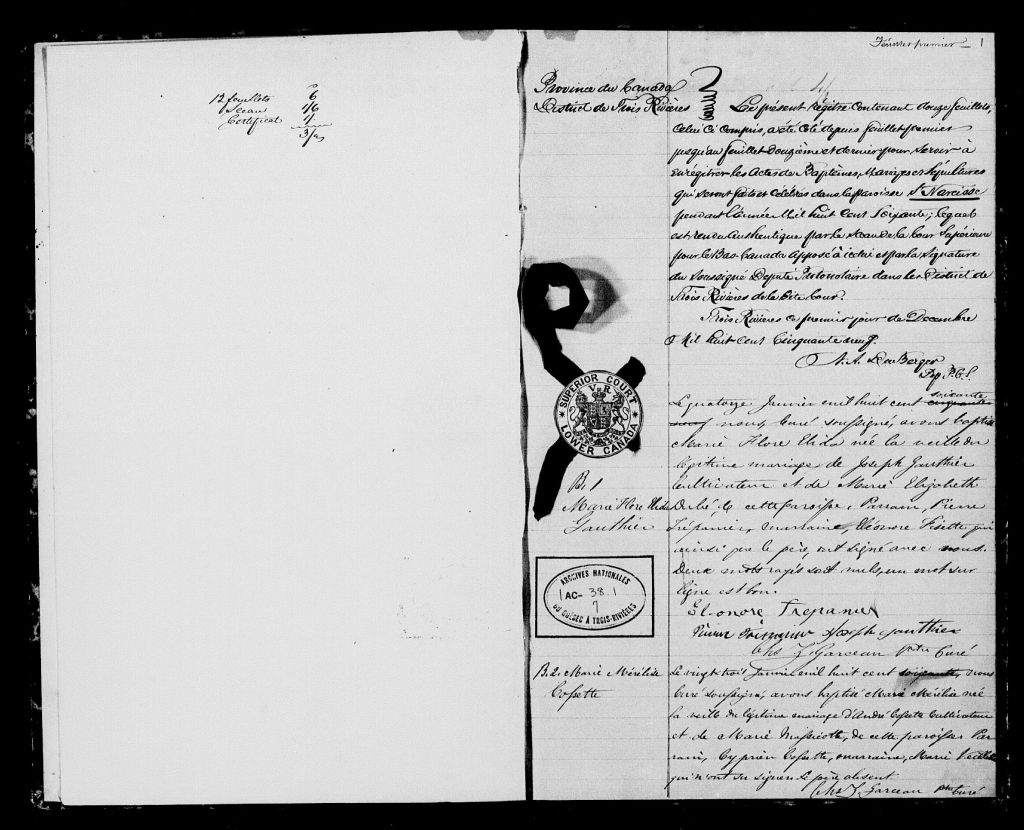 12 feuillets 6
Sceau 1/6
Certificat 1/
3/
Feuillet premier 1
Province du Canada
District de Trois Rivières
Ce présent Régître Contenant douze feuillets,
celui ci compris, a été coté depuis feuillet premier
jusqu'au feuillet Douzième et dernier pour servir à
Enrégîtrer les Actes de Baptêmes, Mariages et Sépultures
qui seront faits et célébrés dans la paroisse St Narcisse
pendant l'année Mil huit Cent Soixante; lequel
est rendu Authentique par le Sceau de la Cour Supérieure
pour le Bas-Canada Apposé à icelui et par la Signature
du Soussigné Député Protonotaire dans le District de
Trois Rivières de la dite Cour.
Trois Rivières ce premier jour de Decembre
Mil huit cent Cinquante neuf.
Dep P.C.S.
SUPERIOR COURT
V R
LOWER CANADA
B. 1
Marie Flore Elida
Gauthier
Le quatorze Janvier mil huit cent cinquante soixante
neuf nous, Curé soussigné, avons baptisé
Marie Flore Elida née la veille du
légitime mariage de Joseph Gauthier
Cultivateur et de Marie Elizabeth
de cette paroisse. Parrain, Pierre
Trépanier, marraine, Eléonore qui
ainsi que le père, ont signé avec nous.
Deux mots rayés sont nuls, un mot sur
ligne est bon.
Eleonore Trepanier
Pierre Joseph Gauthier
Chs Z. Garceau Ptre Curé
ARCHIVES NATIONALES
AC- 38.1
7
DU QUÉBEC À TROIS-RIVIÈRES
B. 2. Marie Mérélise
Cossette
Le vingt trois Janvier mil huit cent soixante, nous
Curé soussigné, avons baptisé Marie Mérélise née
la veille du légitime mariage d'André Cossette Cultivateur
et de Marie Massicotte, de cette paroisse. Par
rain, Cyprien Cossette, marraine, Marie
qui n'ont su signer. Le père absent.
Chs Z. Garceau Ptre Curé